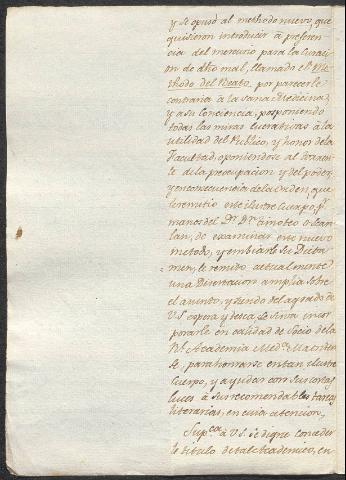 y se opusó al methodo nuevo, que
quisieron introducir à preferen
cia del mercurio para la curaci
on de dho mal, llamado el Me
thodo del Beato, por parecerle
contrario à la sana Medicina,
y a su Conciencia, posponiendo
todas las miras lucrativas à la
utilidad del Publico, y honor de la
Facultad, oponiendose al torren
te de la preocupacion y del poder,
y en consecuencia de la Orden, que
se remitio este ilustre Cuerpo, pr
manos del Dr. Dn. Timoteo O-Scan
lan, de examinar este nuevo
metodo, y embiarle su Dicta
men, le remitió actualmente
una Disertacion amplia sobre
el asunto, y siendo del agrado de
V.S. espera y desea, se sirva incor
porarle en calidad de Socio de la
Rl. Academia Medca. Matriten
se, para honrarse en tan ilustre
Cuerpo, y ayudar con sus cortas
luces à sus recomendables tareas
literarias, en cuia atencion,
Supca. à V.S. se digne conceder
le titulo de tal Academico, en